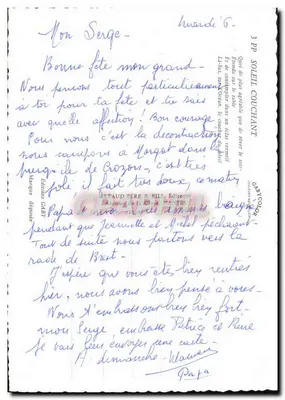 mardi 6.
Mon Serge -
Bonne fête mon grand -
Nous pensons tout particulièrement
à toi pour ta fête et tu sais
avec quelle affection! Bon courage
Pour nous c'est la décontraction
nous campons à Morgat dans la
presqu'île de Crozon, c'est très
joli il fait très doux, ce matin
pendant que Jeannette et Michel pêchaient
Tout de suite nous partons vers la
rade de Brest -
J'espère que vous êtes bien rentrés
hier, nous avons bien pensé à vous -
Nous t'embrassons bien bien fort -
mon Serge, embrasse Patrice et Pierre
Je vais leur envoyer une carte -
A dimanche - Maman
Papa
3 PP SOLEIL COUCHANT
Quoi de plus agréable que de rêver le soir
Etendu sur le sable
Et de contempler dans un ciel vermeil
Là-bas, sans nuage, le coucher du soleil
Editions GABY
Marque déposée